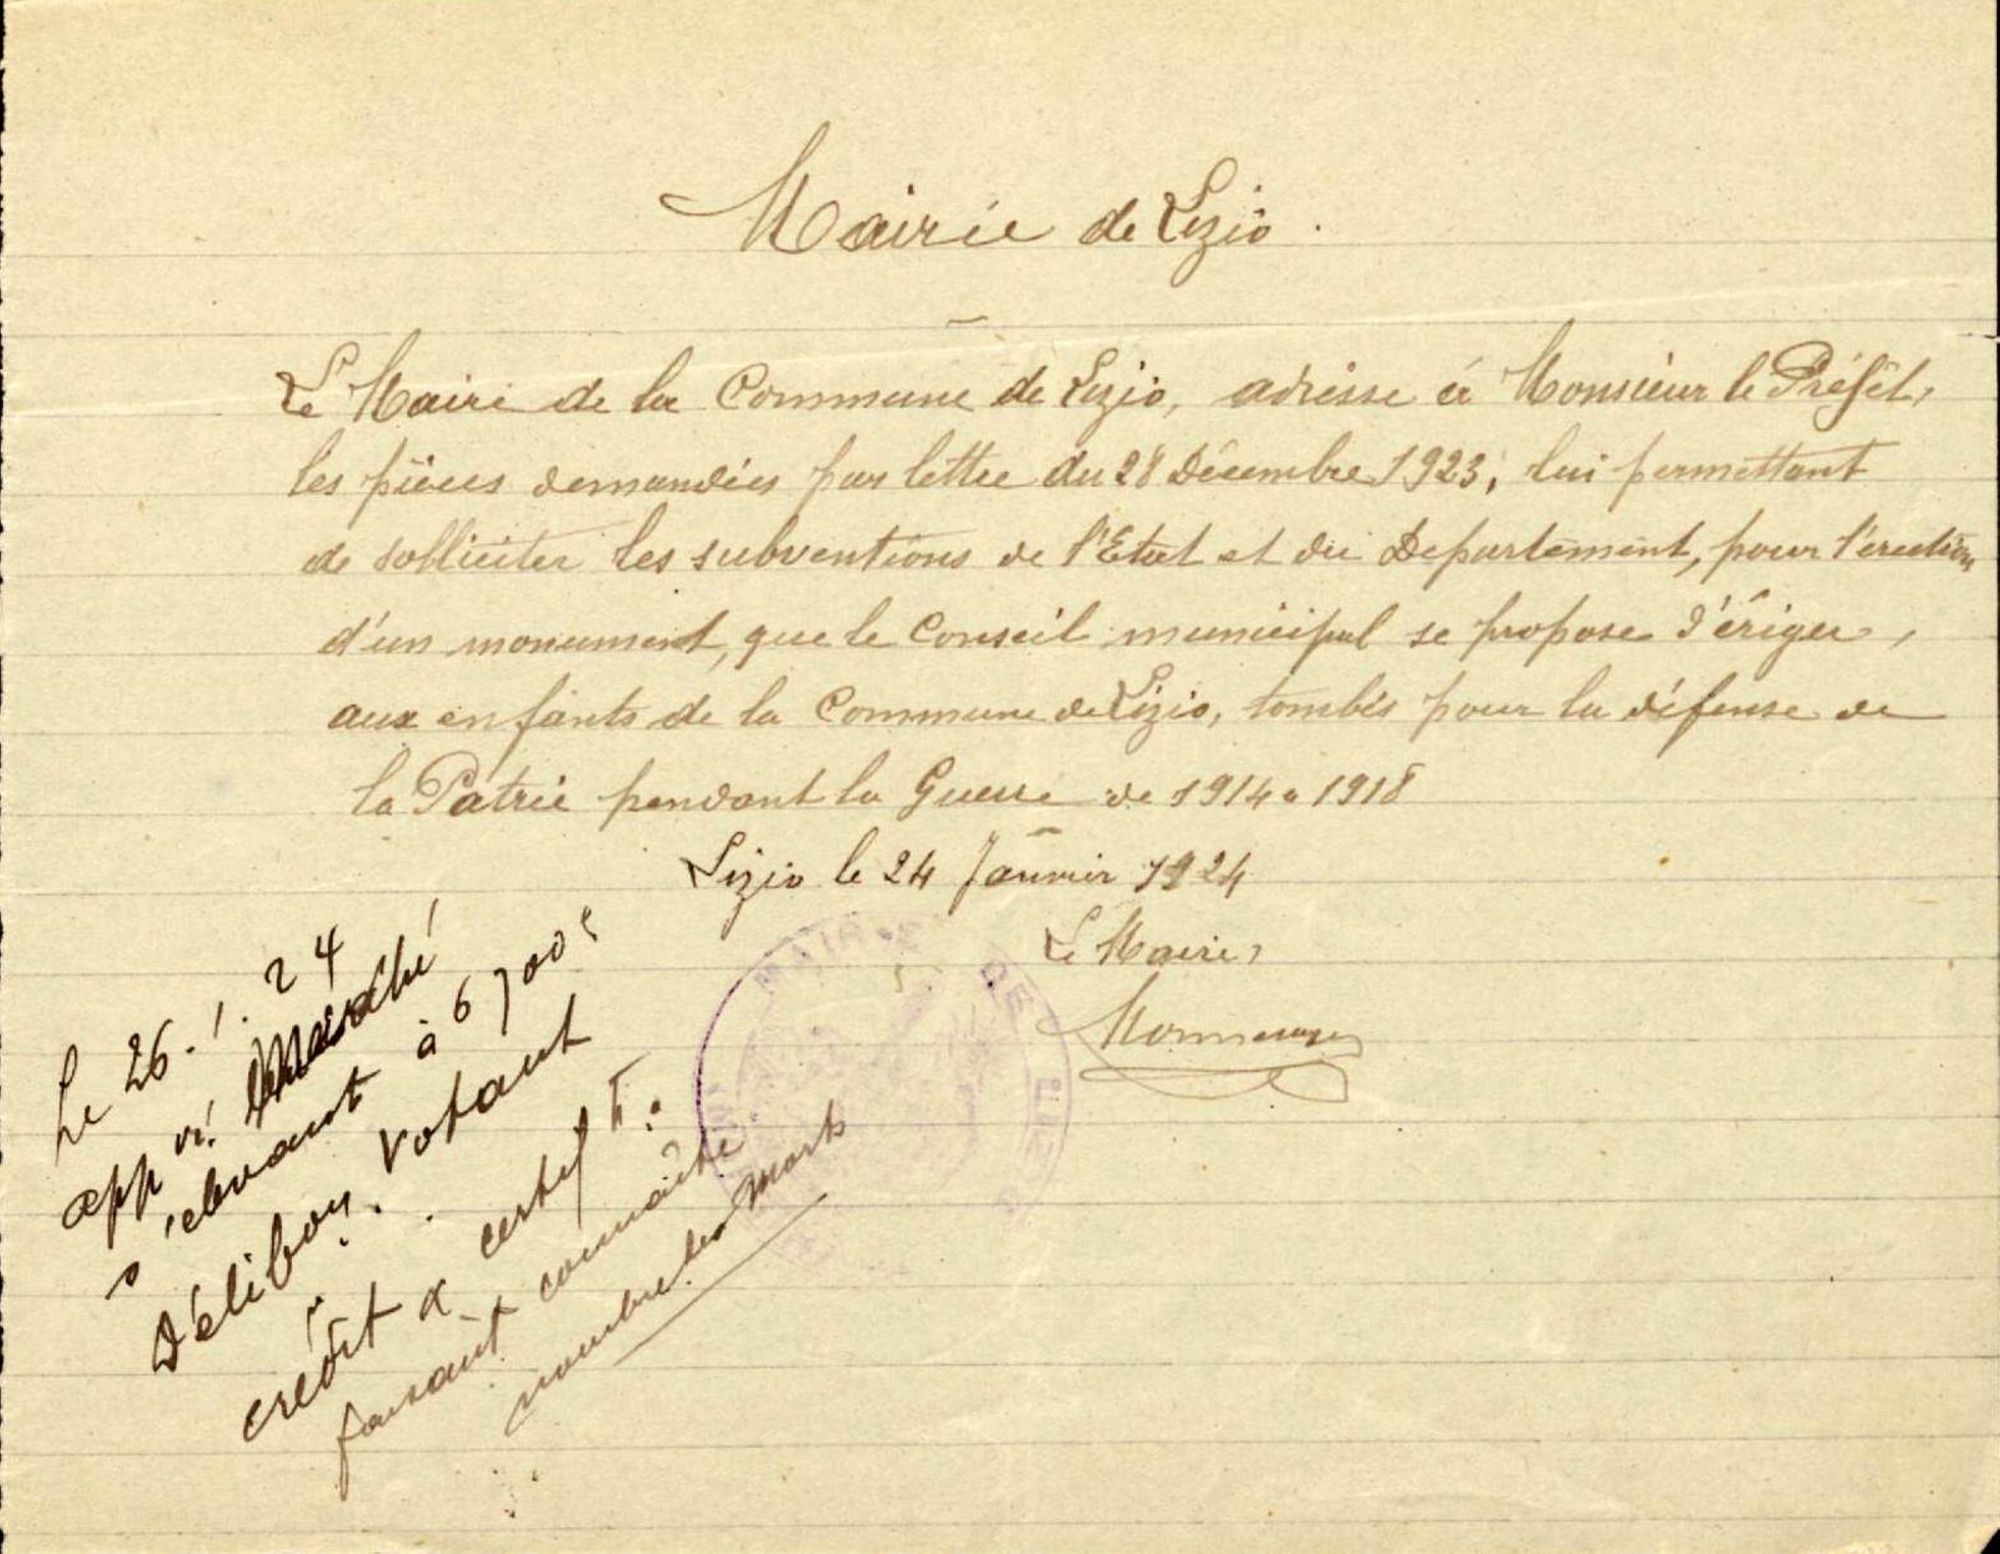 Mairie de Lizio.
Le Maire de la Commune de Lizio, adresse à Monsieur le Préfet,
les pièces demandées par lettre du 28 Décembre 1923, lui permettant
de solliciter les subventions de l'Etat et du Département, pour l'érection
d'un monument, que le Conseil municipal se propose d'ériger,
aux enfants de la Commune de Lizio, tombés pour la défense de
la Patrie pendant la Guerre de 1914 à 1918
Lizio le 24 Janvier 1924
Le Maire,
MAIRIE DE
Le 26.1.24
app vé marché
s'élevant à 6700
Délibon. votant
crédit & certif t.
faisant connaître
nombre des morts